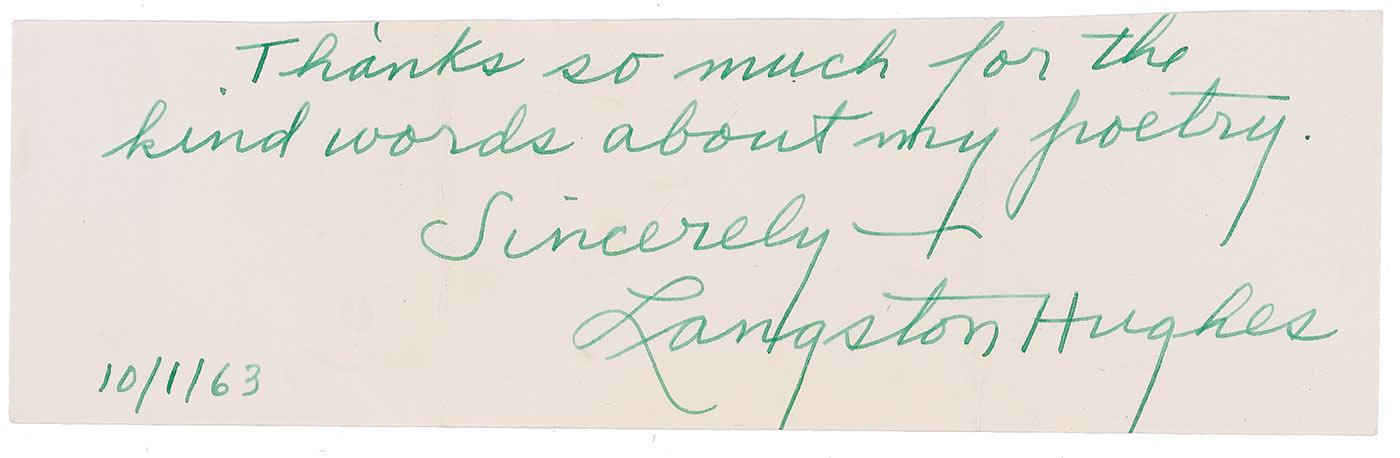 Thanks so much for the
kind words about my poetry.
Sincerely —
Langston Hughes
10/1/63